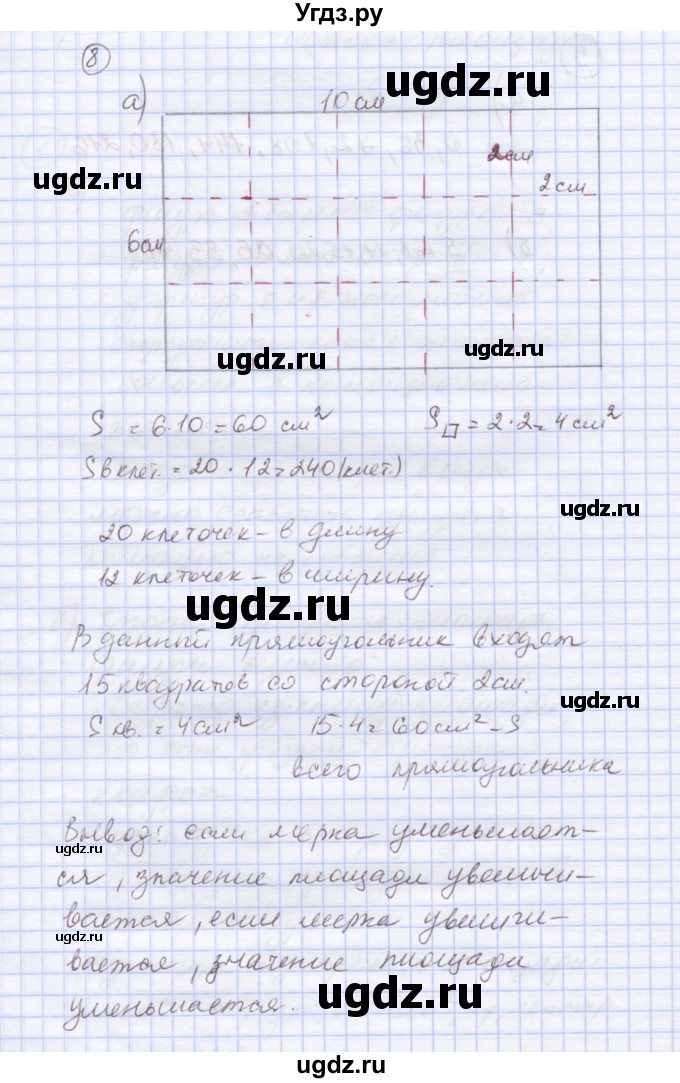 Угдз.ру
8
ugdz.ru
а)
10 см
2см
ugdz.ru
2 см
6см
ugdz.ru
ugdz.ru
S = 6·10 = 60 см²
S□ = 2·2 = 4 см²
S в клет. = 20 · 12 = 240 (клет.)
ugdz.ru
20 клеточек – в длину
12 клеточек – в ширину.
ugdz.ru
В данный прямоугольник входят
15 квадратов со стороной 2см.
ugdz.ru
S кв. = 4 см² 15·4 = 60 см² – S
всего прямоугольника
Вывод: если мерка уменьшает-
ugdz.ru
ся, значение площади увеличи-
вается, если мерка увеличи-
ugdz.ru
вается, значение площади
уменьшается.
ugdz.ru
ugdz.ru